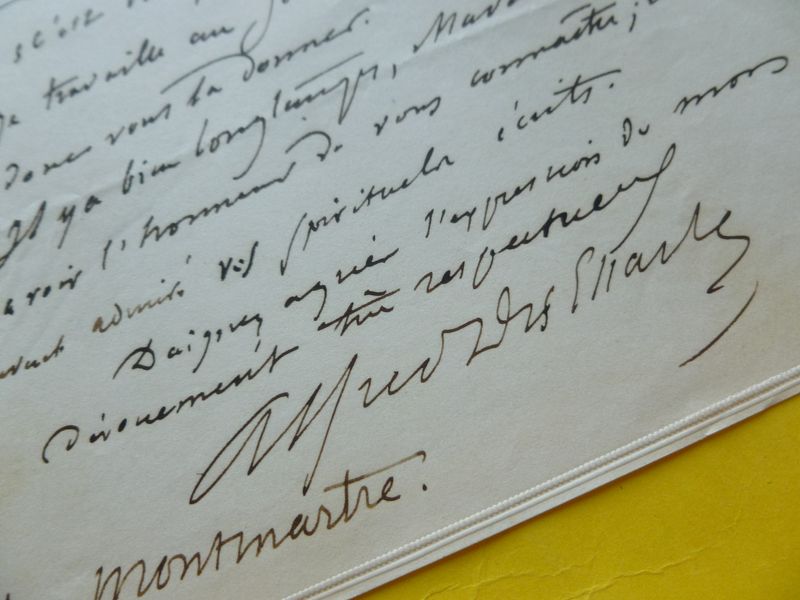 s'est
je travaille au
donc vous la donner.
Il y a bien longtemps, Mada
avoir l'honneur de vous connaître;
ayant admiré vos spirituels écrits.
Daignez agréer l'expression de mon
dévouement très respectueux
Alfred des Essarts
Montmartre.